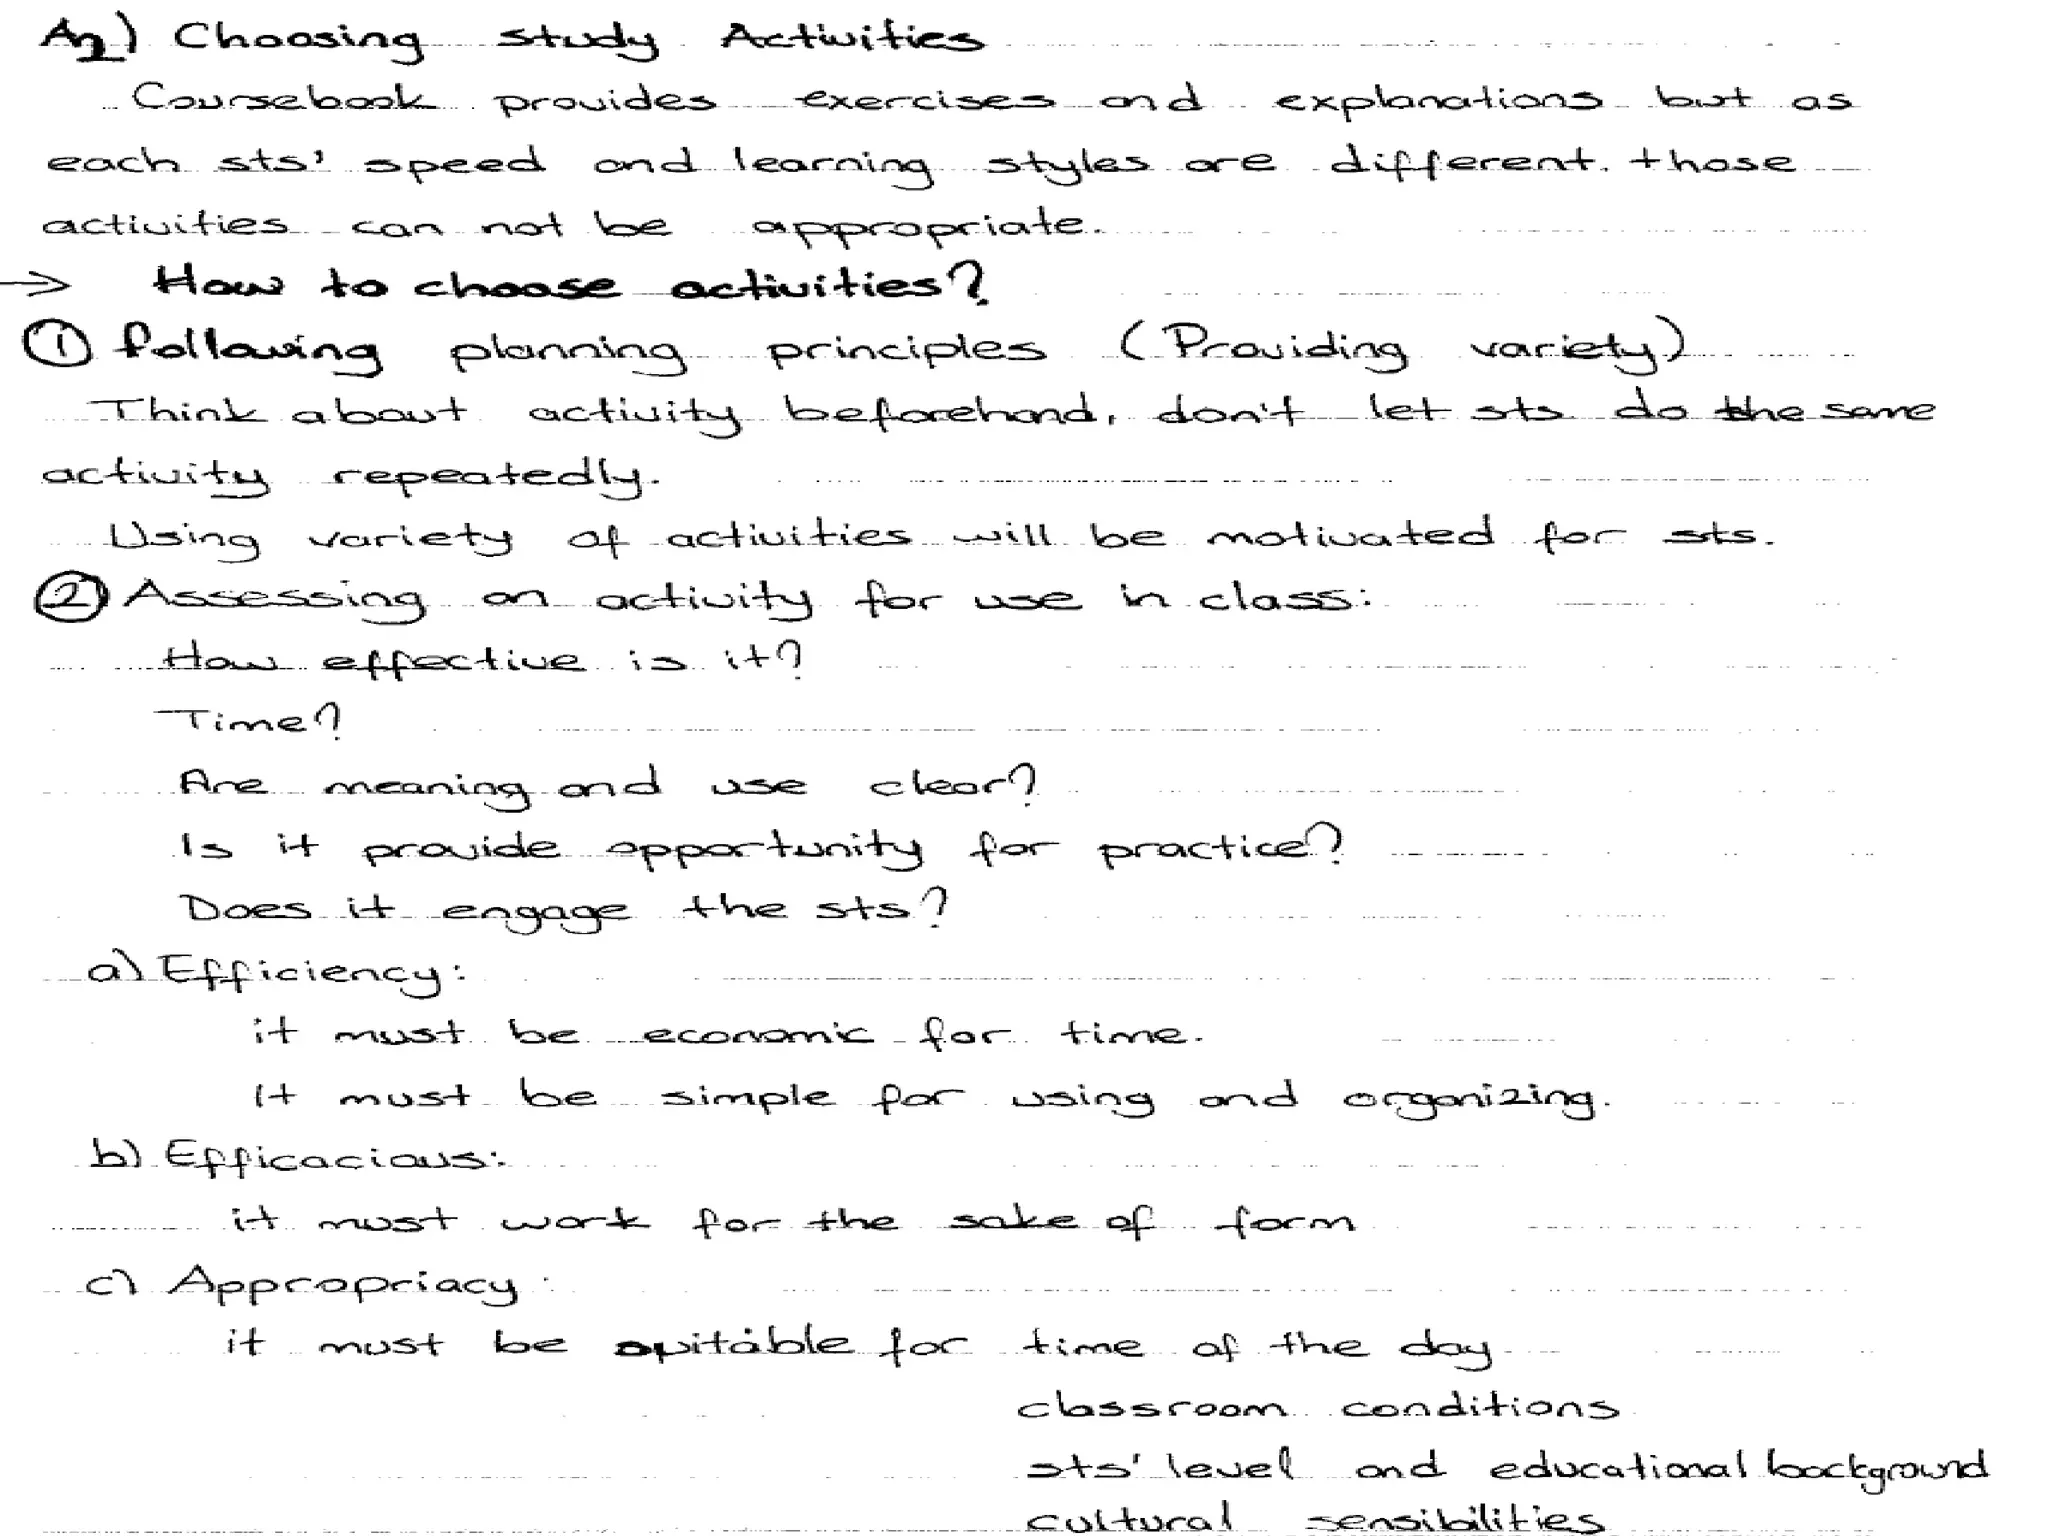 A2) Choosing study Activities
Coursebook provides exercises and explanations but as
each sts' speed and learning styles are different. those
activities can not be appropriate.
→ How to choose activities?
① following planning principles (Providing variety)
Think about activity beforehand, don't let sts do the same
activity repeatedly.
Using variety of activities will be motivated for sts.
② Assessing an activity for use in class:
How effective is it?
Time?
Are meaning and use clear?
Is it provide opportunity for practice?
Does it engage the sts?
a) Efficiency:
it must be economic for time.
It must be simple for using and organizing.
b) Efficacious:
it must work for the sake of form
c) Appropriacy:
it must be suitable for time of the day
classroom conditions
sts' level and educational background
cultural sensibilities